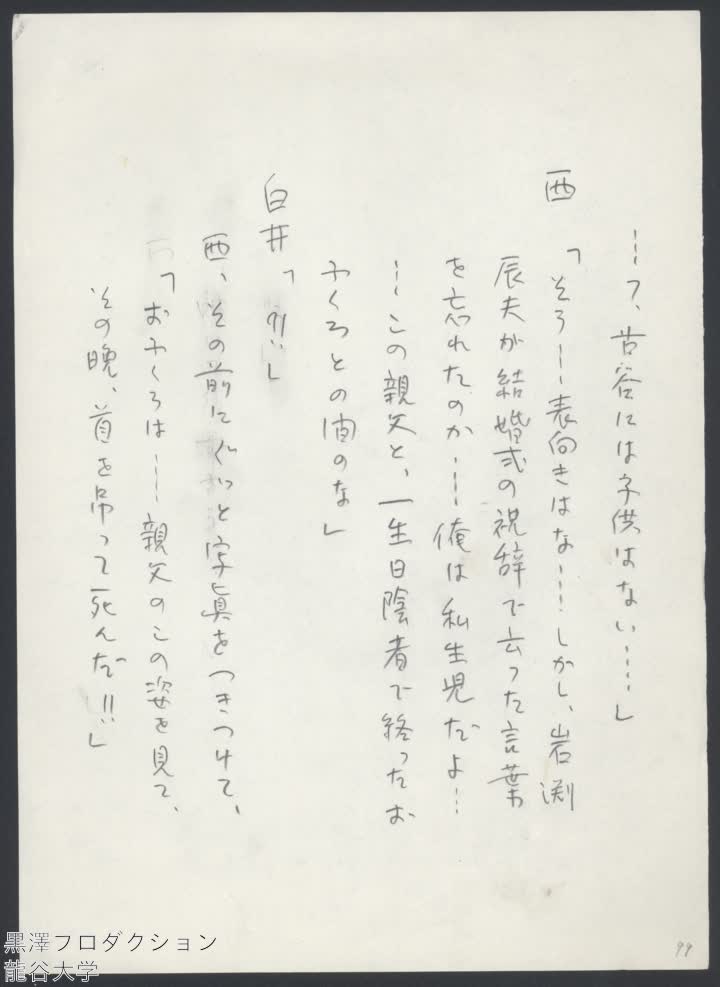 …フ、古谷には子供はない……」
西　「そう――表向きはな……しかし、岩渕
辰夫が結婚式の祝辞で云った言葉
を忘れたのか……俺は私生児だよ…
…この親父と、一生日陰者で終ったお
ふくろとの間のな」
白井「?!!」
西、その前にぐいっと字真をつきつけて、
「おふくろは……親父のこの姿を見て、
その晩、首を吊って死んだ!!」
99
黒澤プロダクション
龍谷大学